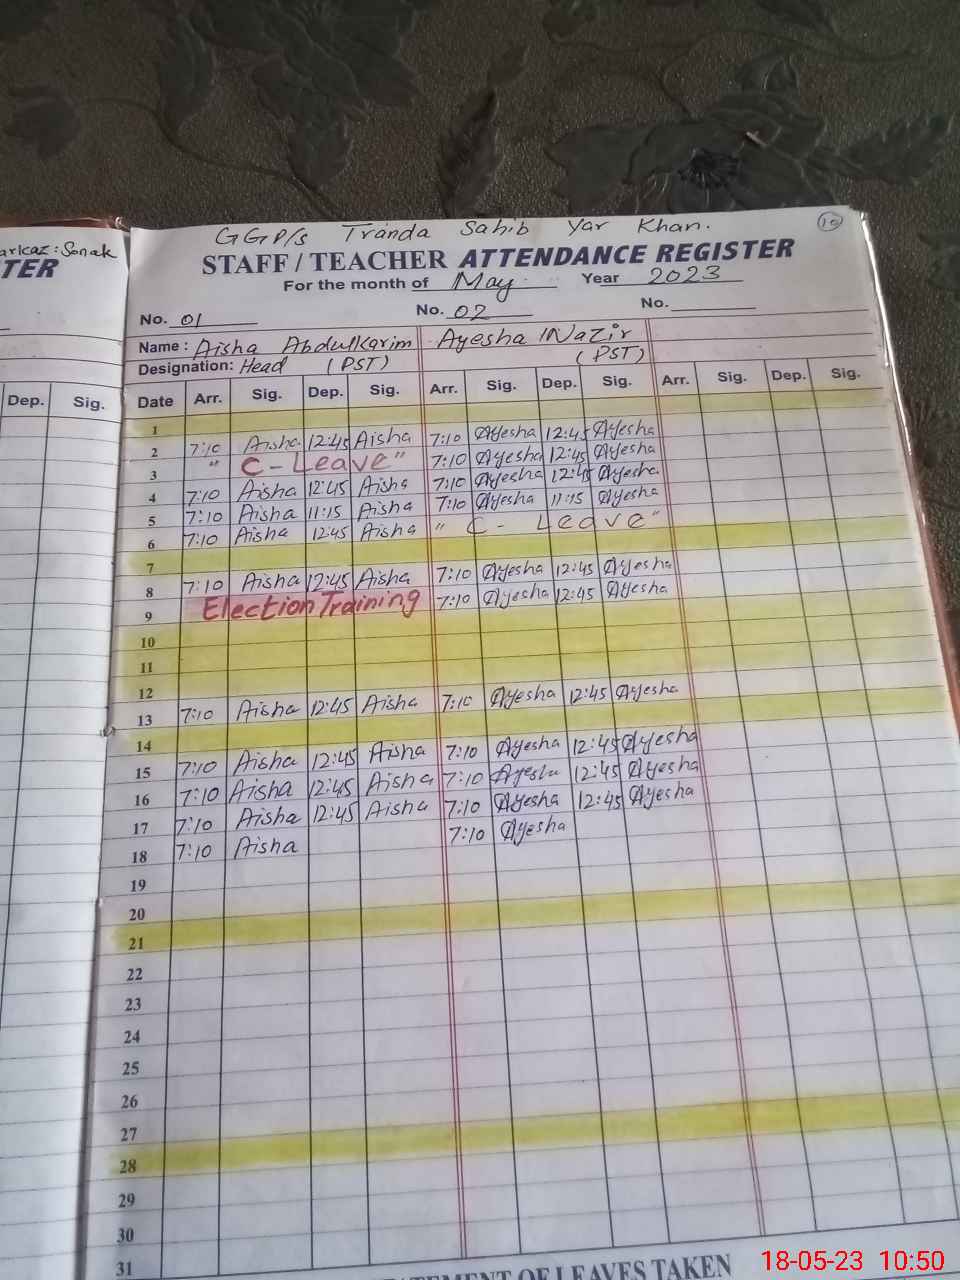 arkaz: Sonak
TER
Dep. Sig.
10
GGP/S Tranda Sahib Yar Khan.
STAFF / TEACHER ATTENDANCE REGISTER
For the month of May. Year 2023
No. 01 No. 02 No.
Name : Aisha Abdulkarim Ayesha Nazir
Designation: Head (PST) (PST)
Date Arr. Sig. Dep. Sig. Arr. Sig. Dep. Sig. Arr. Sig. Dep. Sig.
1
2 7:10 Aisha 12:45 Aisha 7:10 Ayesha 12:45 Ayesha
3 " C - Leave " 7:10 Ayesha 12:45 Ayesha
4 7:10 Aisha 12:45 Aisha 7:10 Ayesha 12:45 Ayesha
5 7:10 Aisha 11:15 Aisha 7:10 Ayesha 11:15 Ayesha
6 7:10 Aisha 12:45 Aisha " C - Leave "
7
8 7:10 Aisha 12:45 Aisha 7:10 Ayesha 12:45 Ayesha
9 Election Training 7:10 Ayesha 12:45 Ayesha
10
11
12
13 7:10 Aisha 12:45 Aisha 7:10 Ayesha 12:45 Ayesha
14
15 7:10 Aisha 12:45 Aisha 7:10 Ayesha 12:45 Ayesha
16 7:10 Aisha 12:45 Aisha 7:10 Ayesha 12:45 Ayesha
17 7:10 Aisha 12:45 Aisha 7:10 Ayesha 12:45 Ayesha
18 7:10 Aisha 7:10 Ayesha
19
20
21
22
23
24
25
26
27
28
29
30
31
STATEMENT OF LEAVES TAKEN
18-05-23 10:50